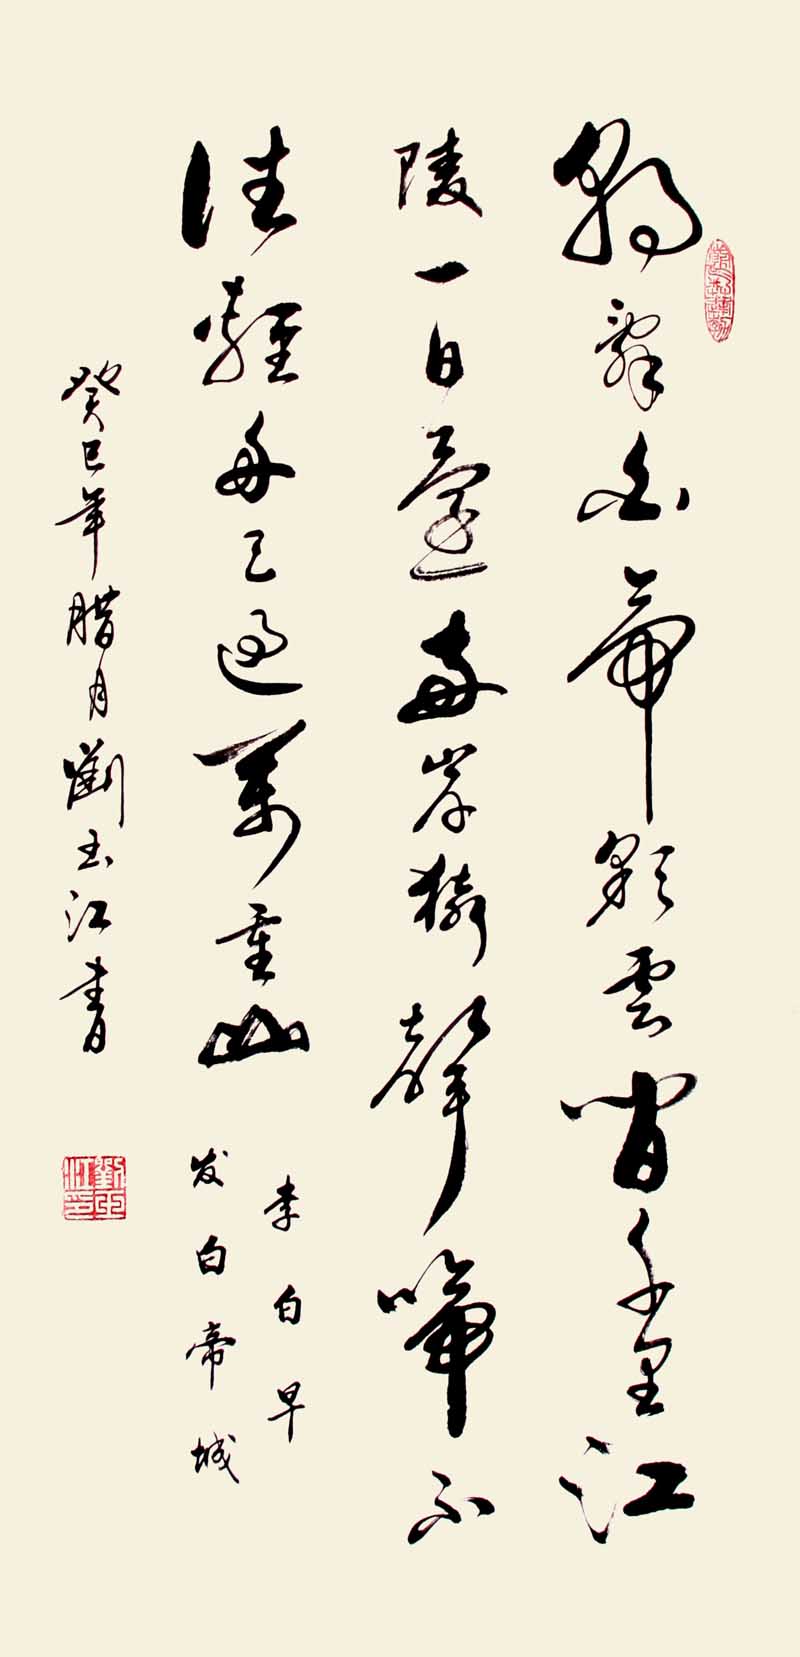 朝辞白帝彩雲間千里江
陵一日還兩岸猿聲啼不
住輕舟已過萬重山
李白早
发白帝城
癸巳年腊月劉玉江書
劉玉江印